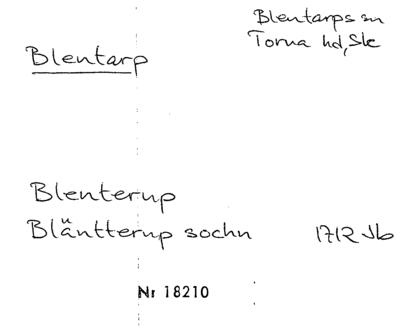 Blentarps sn
Torna hd, Sk
Blentarp
Blenterup
Bläntterup sochn 1712 Jb
Nr 18210